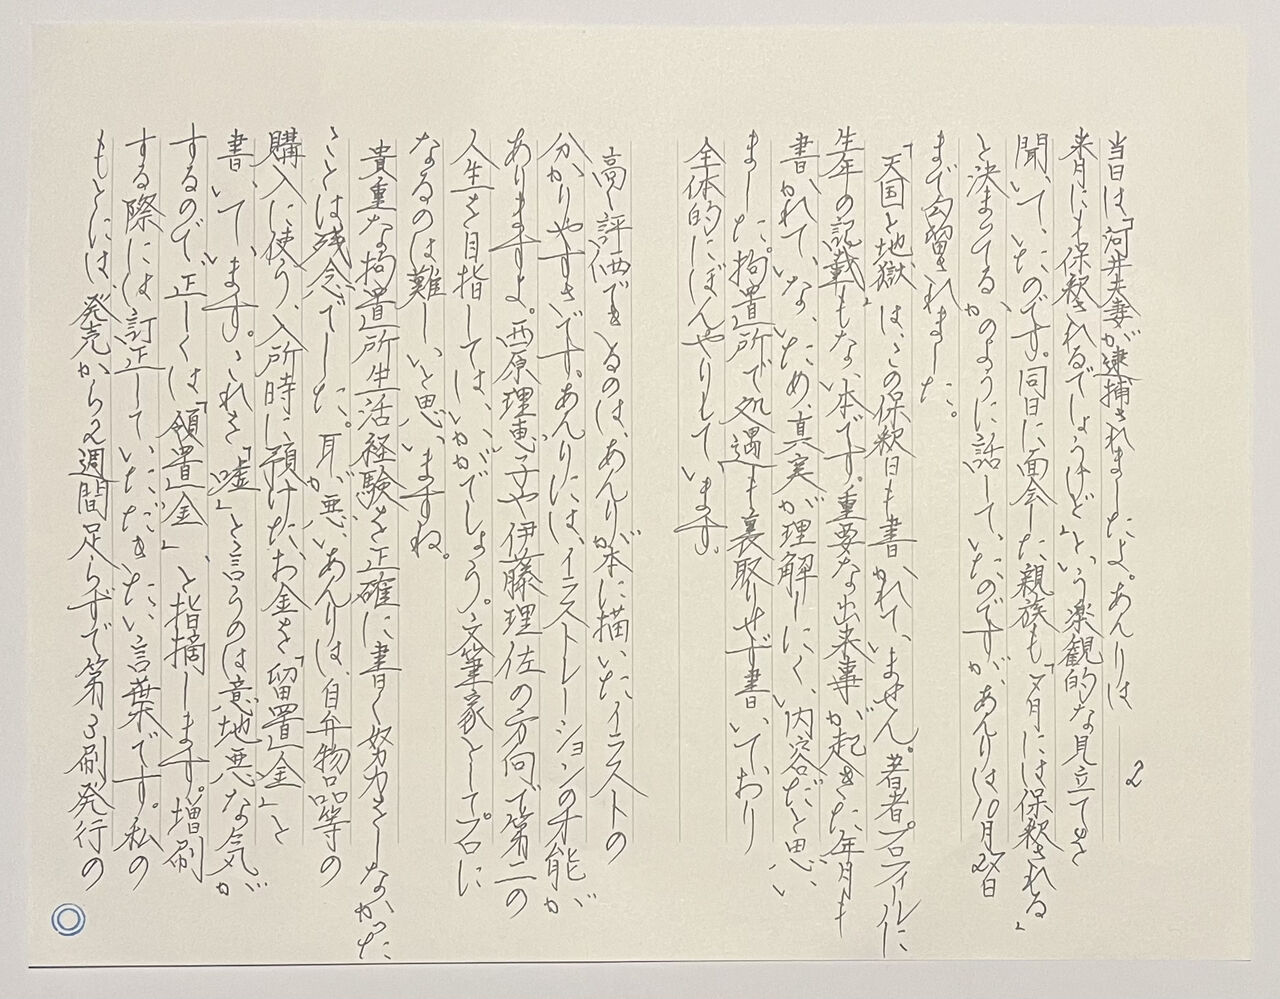 2
当日は「河井夫妻が逮捕されましたよ。あんりは
来月にも保釈されるでしょうけど」という楽観的な見立てを
聞いていたのです。同日に面会した親族も「7月には保釈される」
と決まってるかのように話していたのですが、あんりは10月27日
まで勾留されました。
「天国と地獄」は、この保釈日も書かれていません。著者プロフィールに
生年の記載もない本です。重要な出来事が起きた年月も
書かれていないため、真実が理解しにくい内容だと思い
ました。拘置所で処遇も裏取りせず書いており
全体的にぼんやりしています。
高く評価できるのは、あんりが本に描いたイラストの
分かりやすさです。あんりには、イラストレーションの才能が
ありますよ。西原理恵子や伊藤理佐の方向で第二の
人生を目指しては、いかがでしょう。文筆家としてプロに
なるのは難しいと思いますね。
貴重な拘置所生活経験を正確に書く努力をしなかった
ことは残念でした。耳が悪いあんりは、自弁物品等の
購入に使う、入所時に預けたお金を「留置金」と
書いています。これを「嘘」と言うのは意地悪な気が
するので、正しくは「領置金」、と指摘します。増刷
する際には訂正していただきたい言葉です。私の
もとには発売から2週間足らずで第3刷発行の